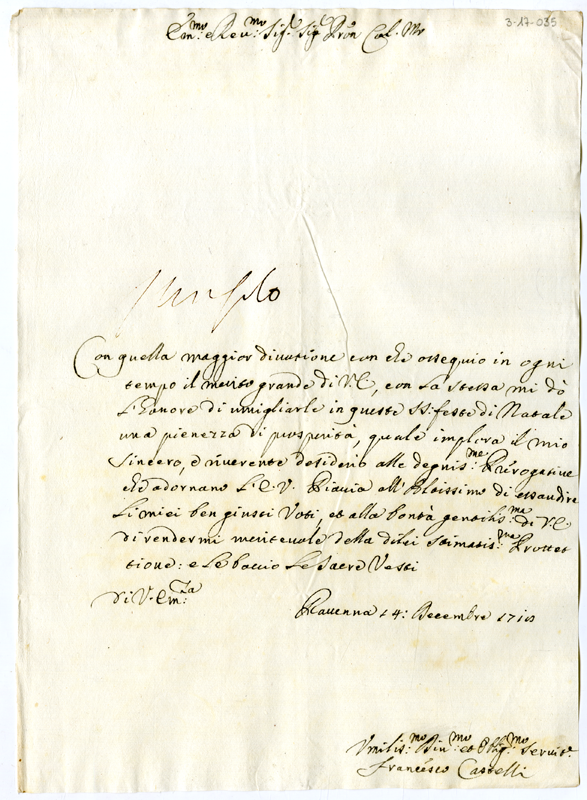 Em.mo e Reu.mo Sig.r Sig.r Pron Col.mo
3-17-035
Con quella maggior diuotione con che ossequio in ogni
tempo il merito grande di V.E, con la stessa mi dò
l'honore di umigliarle in queste SS: feste di Natale
una pienezza di prosperità, quale implora il mio
sincero, e riuerente desiderio alle degnis:me Prerogatiue
che adornano l'E.V. Piaccia all'Altissimo di essaudire
li miei ben giusti Voti, et alla bontà gentilis:ma di V.E
di rendermi meriteuole della di lei stimatis:ma Prottet
tione: e le baccio le Sacre Vesti
Di V. Em:za
Rauenna 24: Decembre 1710
Vmilis:mo Diu:mo et Oblig:mo Seruit.e
Francesco Castelli